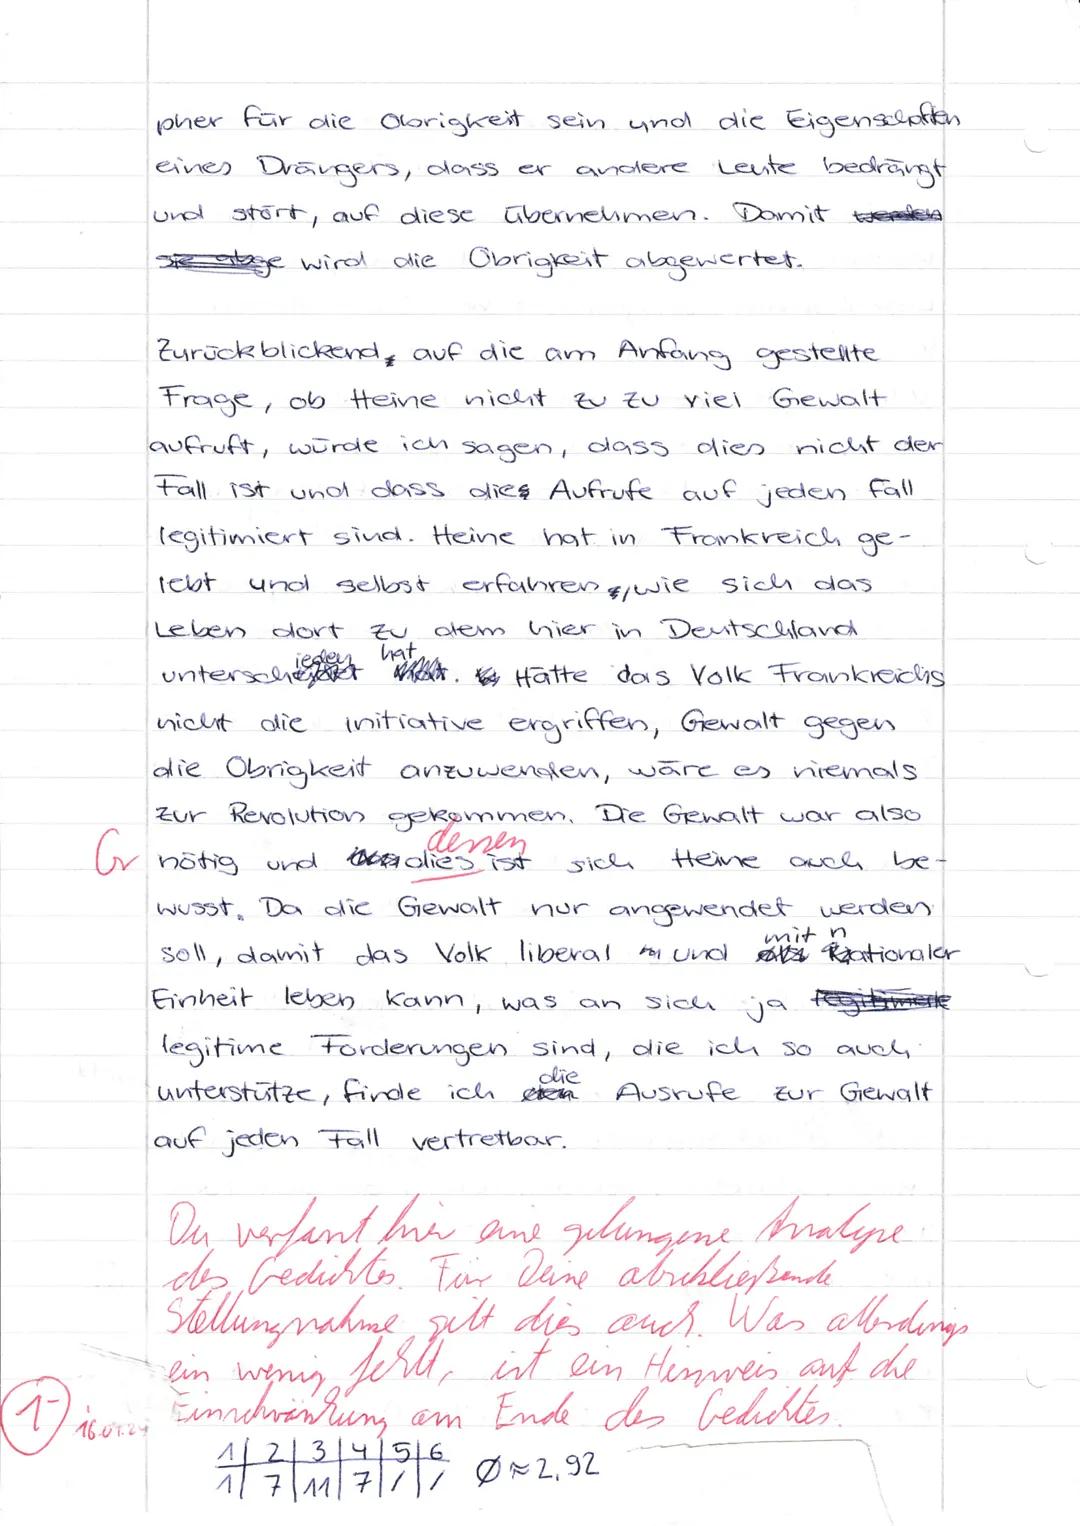 pher für die Obrigkeit sein und die Eigenschaften
eines Drängers, dass er andere Leute bedrängt
und stört, auf diese übernehmen. Damit werden
sie abge wird die Obrigkeit abgewertet.
Zurückblickend, auf die am Anfang gestellte
Frage, ob Heine nicht zu zu viel Gewalt
aufruft, würde ich sagen, dass dies nicht der
Fall ist und dass dies Aufrufe auf jeden Fall
legitimiert sind. Heine hat in Frankreich ge-
lebt und selbst erfahren, wie sich das
Leben dort zu dem hier in Deutschland
hat
untersch Hätte das Volk Frankreichs
nicht die initiative ergriffen, Gewalt gegen
die Obrigkeit anzuwenden, wäre es niemals
zur Revolution gekommen. Die Gewalt war also
dessen
Gr nötig und dies ist sich Heine auch be-
wusst. Da die Gewalt nur angewendet werden
mit n
soll, damit das Volk liberal und ationaler
Einheit leben kann, was an sich ja legitimierte
legitime Forderungen sind, die ich so auch
die
unterstütze, finde ich Ausrufe zur Gewalt
auf jeden Fall vertretbar.
Du verfasst hier eine gelungene Analyse
des Gedichtes. Für Deine abschließende
Stellungnahme gilt dies auch. Was allerdings
ein wenig fehlt, ist ein Hinweis auf die
Einschränkung am Ende des Gedichtes.
1- 16.01.24
1 2 3 4 5 6
1 7 11 7 / /
Ø≈2,92